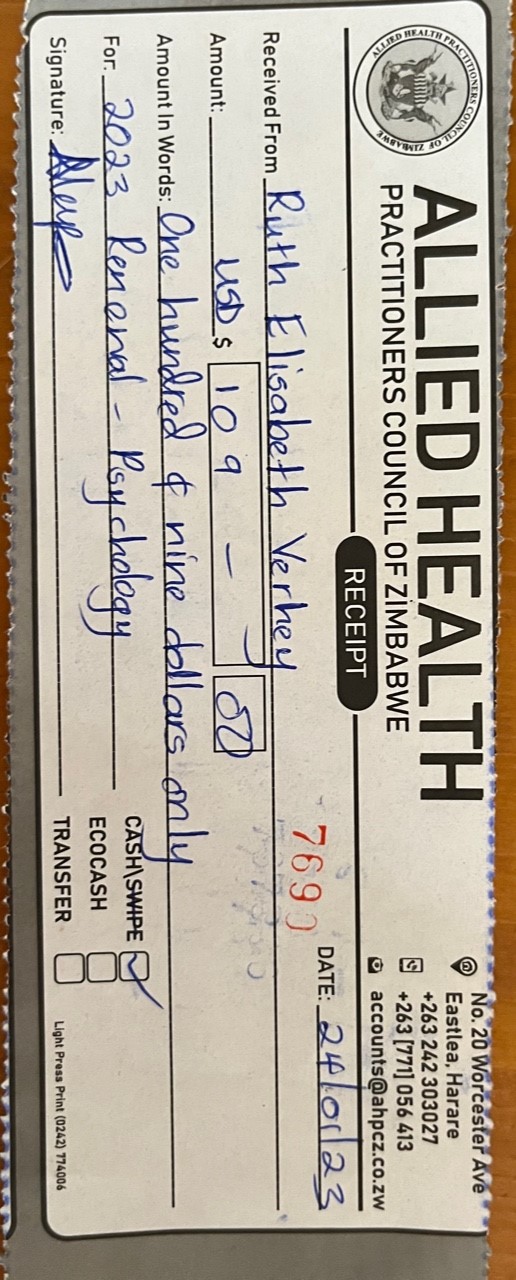 ALLIED HEALTH PRACTITIONERS COUNCIL OF ZIMBABWE
ALLIED HEALTH
PRACTITIONERS COUNCIL OF ZIMBABWE
No. 20 Worcester Ave
Eastlea, Harare
+263 242 303027
+263 (771) 056 413
accounts@ahpcz.co.zw
RECEIPT
7690
DATE: 24/01/23
Received From Ruth Elisabeth Verhey
Amount: USD $ 109 -
Amount In Words: One hundred & nine dollars only
For: 2023 Renewal - Psychology
CASH\SWIPE ✓
ECOCASH
Signature:
TRANSFER
Light Press Print (0242) 774006